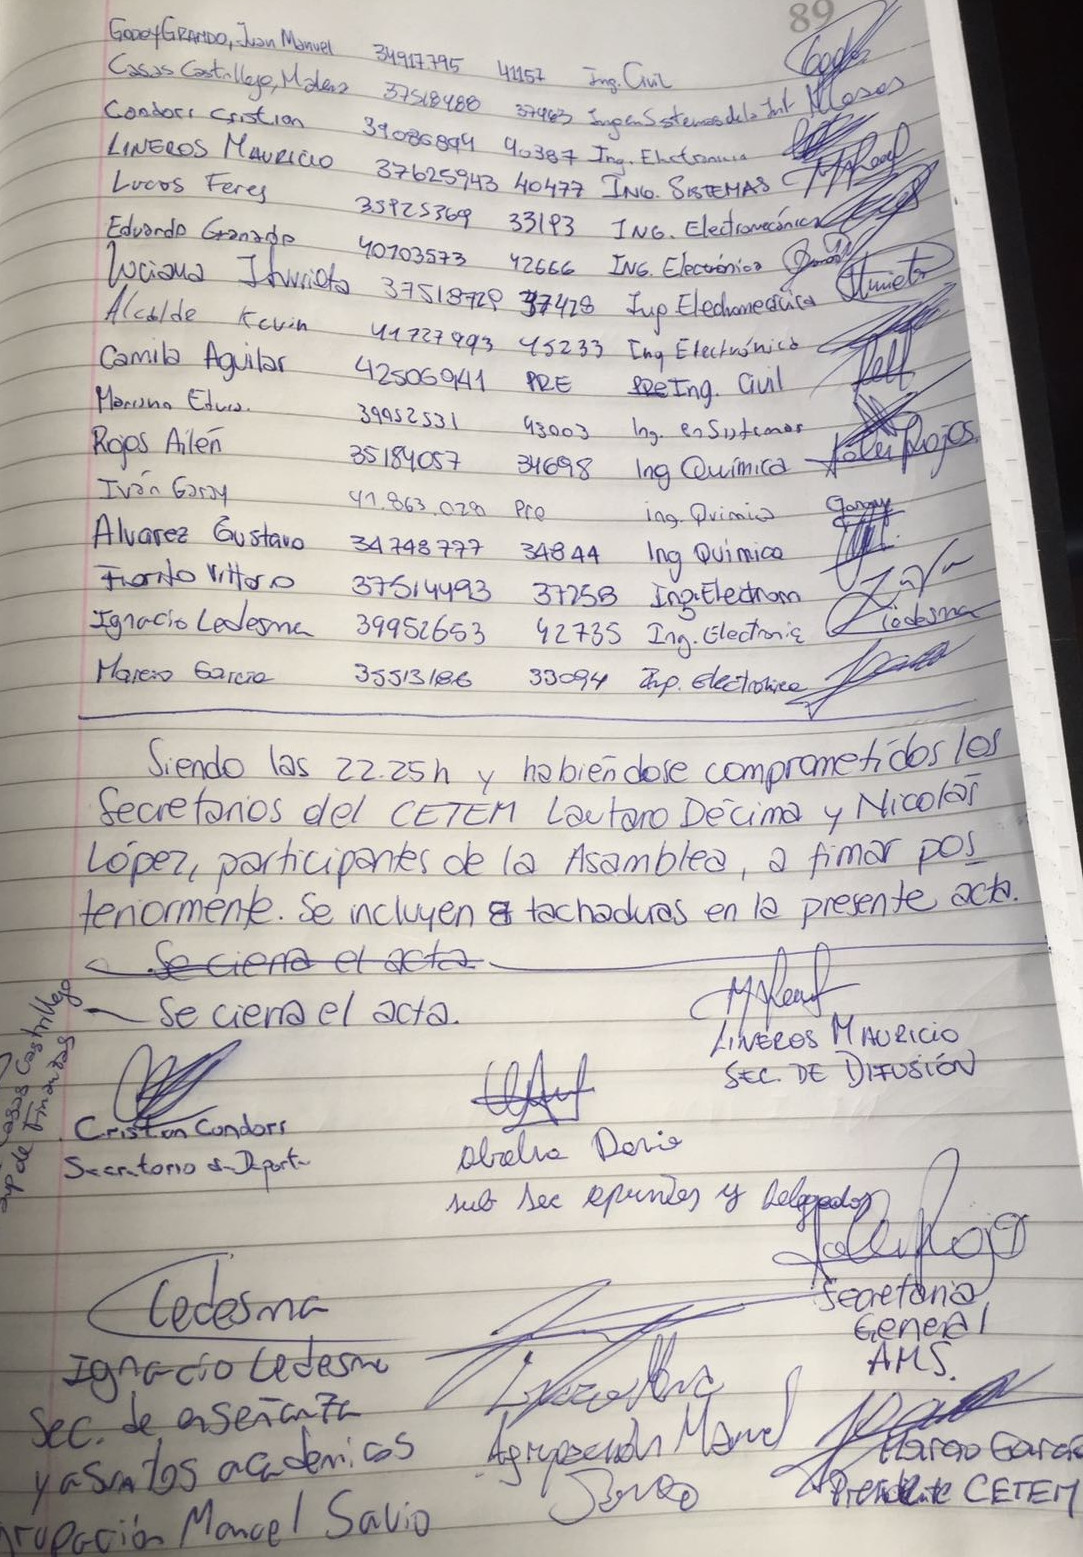 89
GODOY GRANDO, Juan Manuel 34917795 41157 Ing. Civil
Casas Castillejo, Malena 37518488 37463 Ing en Sistemas de la Inf. MCasas
Condori Cristian 39086894 40387 Ing. Electronica
LINEROS MAURICIO 37625943 40477 ING. SISTEMAS
Lucas Feres 35925369 33193 ING. Electromecánica
Eduardo Granado 40703573 42666 ING. Electrónica
Luciana Iturrieta 37518729 37428 Ing Electromecánica Iturrieta
Alcalde Kevin 41727993 45233 Ing Electrónica
Camila Aguilar 42506941 PRE Ing. Civil
Mariano 39952531 43003 Ing. en Sistemas
Rojas Ailén 35184057 34698 Ing Química Ailén Rojas
Iván Garay 41.863.028 Pre ing. Quimica Garay
Alvarez Gustavo 34748777 34844 Ing Química
Vittorio 37514493 37258 Ing. Electrom
Ignacio Ledesma 39952653 42735 Ing. Electronic Ledesma
Marcio Garcia 35513186 33094 Ing. Electronica
Siendo las 22.25h y habiéndose comprometidos los
Secretarios del CETEM Lautaro Décima y Nicolás
López, participantes de la Asamblea, a fimar pos
teriormente. Se incluyen 8 tachaduras en la presente acta.
Se cierra el acta
Se cierra el acta.
Casas Castillejo
de Finanzas
LINEROS MAURICIO
SEC. DE DIFUSIÓN
Cristian Condori
Secretario de Deporte
Dario
sub sec apuntes y Delegados
Ailén Rojas
Secretaria
General
AMS.
Ledesma
Ignacio Ledesma
Sec. de enseñanza
y asuntos academicos
Agrupación Manuel Savio
Agrupación Manuel
Savio
Marcio Garcia
Presidente CETEM